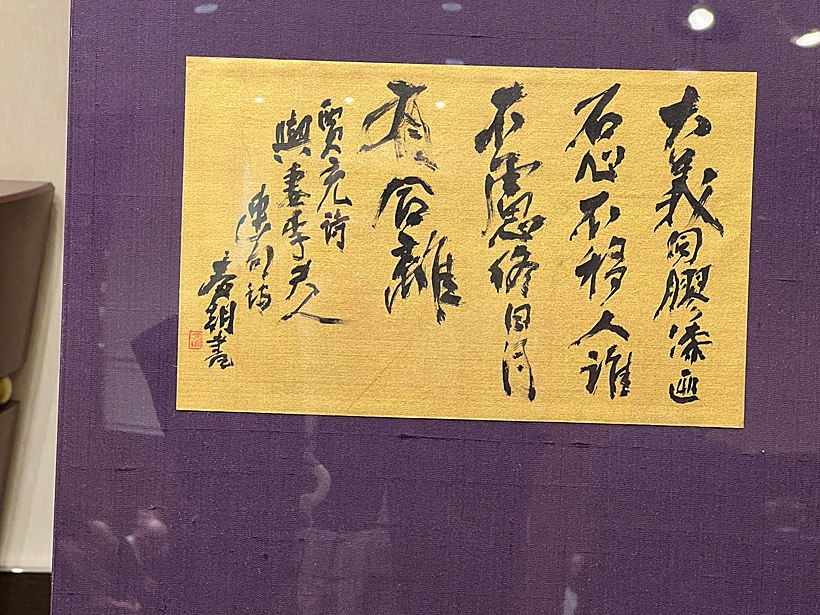 大義同膠漆匪
石心不移人誰
不慮終日月
有合離
賈充詩
與妻李夫人
連句詩